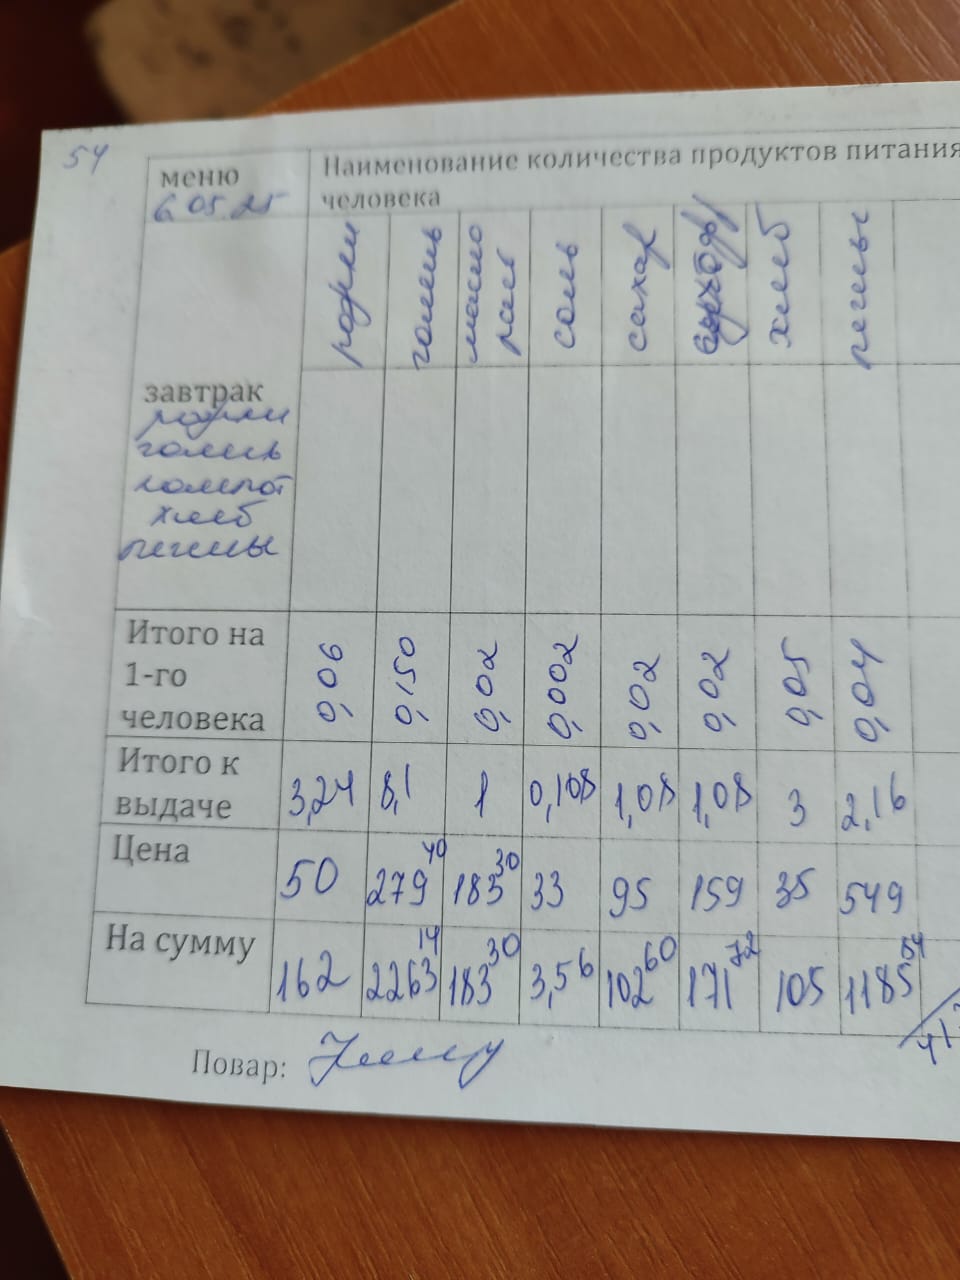 54
меню
6.05.25
Наименование количества продуктов питания
человека
рожки голень масло раст соль сахар сухофр хлеб печенье
завтрак
рожки
голень
компот
хлеб
печенье
Итого на 1-го человека 0,06 0,150 0,02 0,002 0,02 0,02 0,05 0,04
Итого к выдаче 3,24 8,1 1 0,108 1,08 1,08 3 2,16
Цена 50 279 40 183 30 33 95 159 35 549
На сумму 162 2263 14 183 30 3,56 102 60 171 72 105 1185 84
Повар: